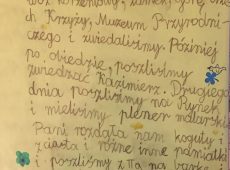 wóz korzeniowy, zamek, górę
ch Krzyży, Muzeum Przyrodni-
czego i zwiedaliśmy. Później
po obiedzie, poszliśmy
zwiedzać Kazimierz. Drugiego
dnia poszliśmy na Rynek,
i mieliśmy plener malarski
Pani rozdała nam koguty z
ciasta i różne inne pamiątki
i poszliśmy z na barkę